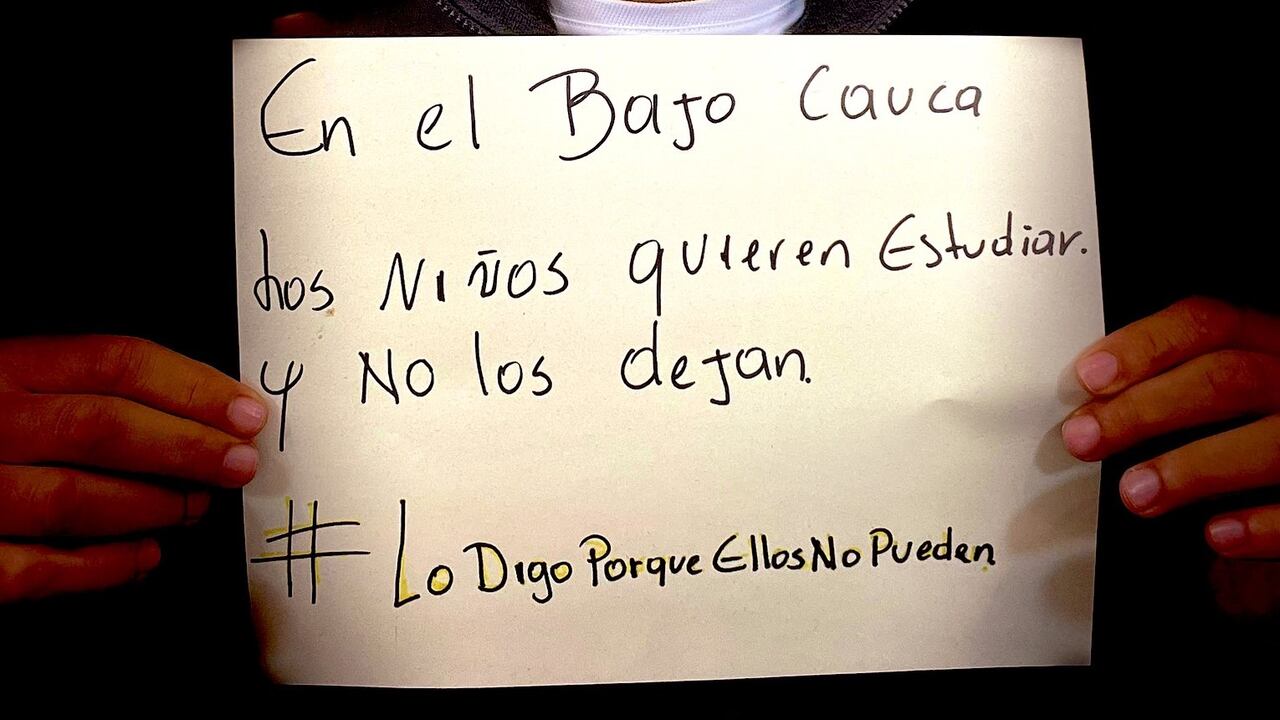 En el Bajo Cauca
Los Niños quieren Estudiar.
y No los dejan.
#LoDigoPorqueEllosNoPueden